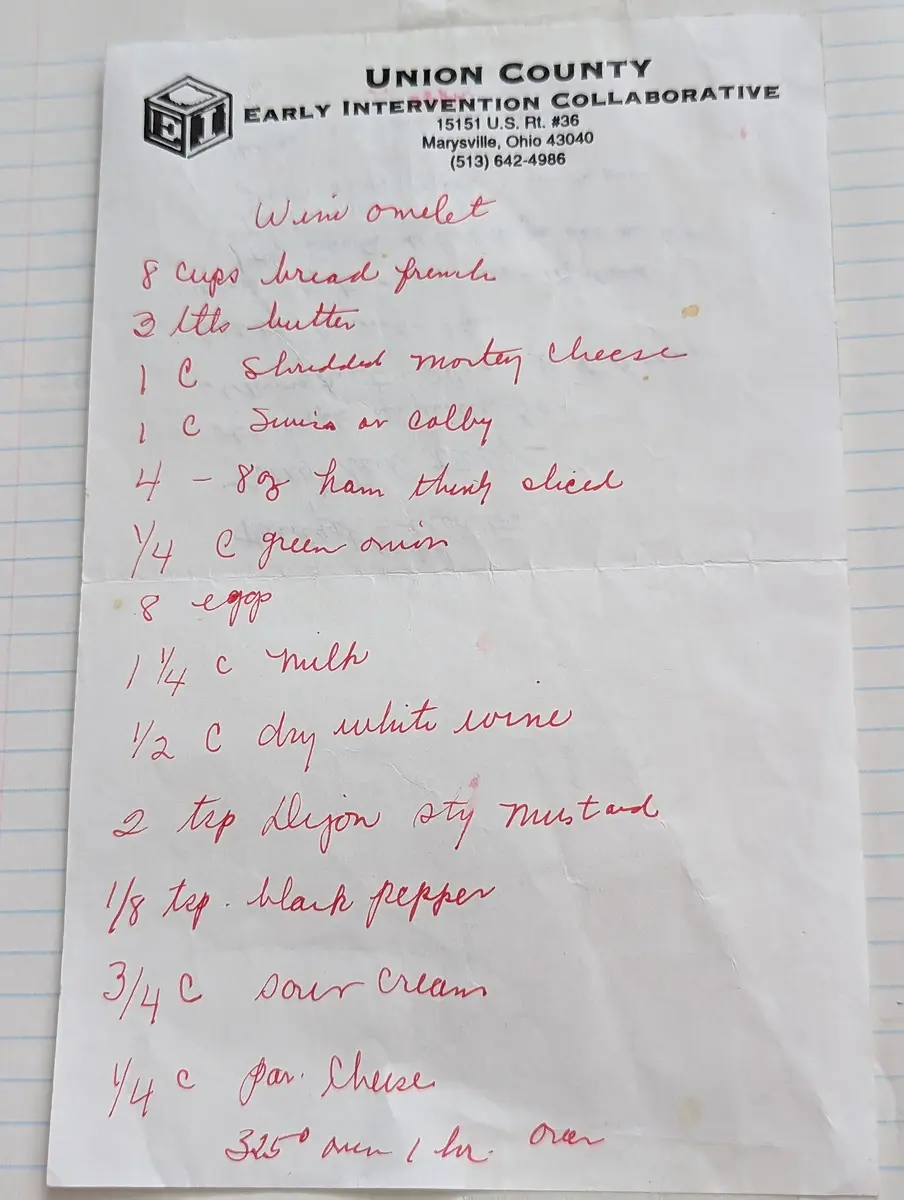 UNION COUNTY
EI EARLY INTERVENTION COLLABORATIVE
15151 U.S. Rt. #36
Marysville, Ohio 43040
(513) 642-4986
Wine omelet
8 cups bread french
3 tbls butter
1 C Shredded montey cheese
1 C Swiss or colby
4 - 8 oz ham thinly sliced
1/4 C green onion
8 eggs
1 1/4 C milk
1/2 C dry white wine
2 tsp Dijon sty mustard
1/8 tsp. black pepper
3/4 C sour cream
1/4 C par. Cheese
325° oven 1 hr.